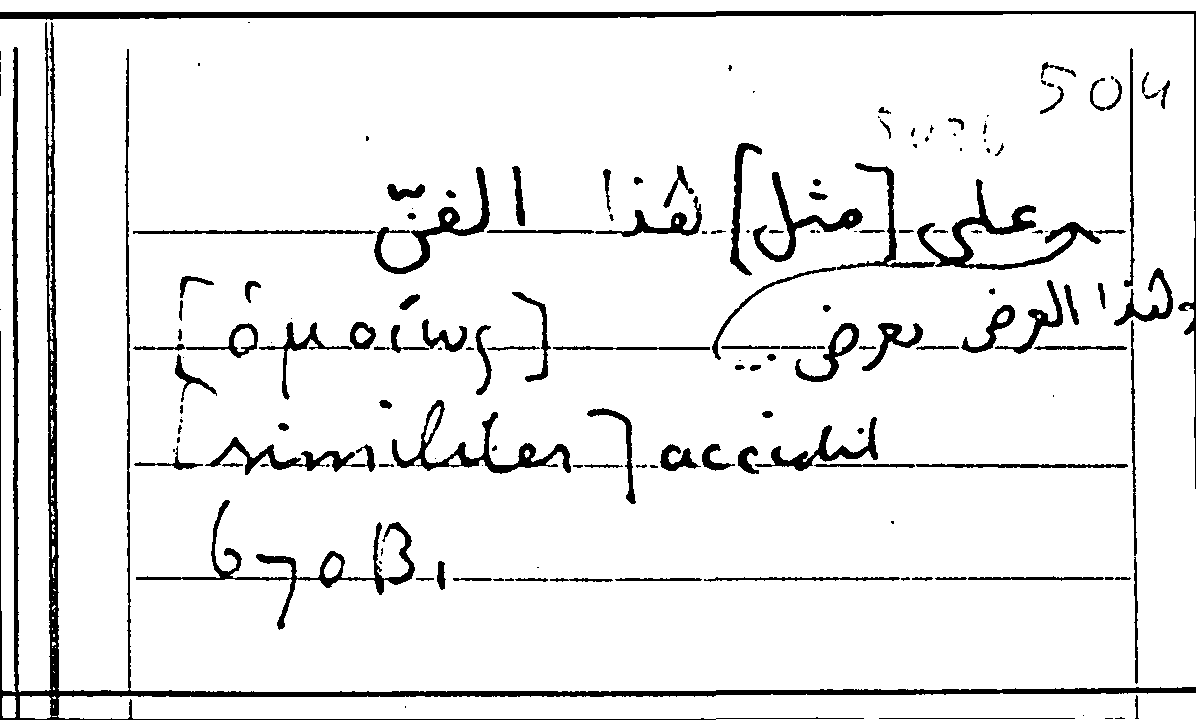 504
5076
على [مثل] هذا الفنّ
وهذا العرض يعرض ...
[ὁμοίως]
[similiter] accidit
670B1